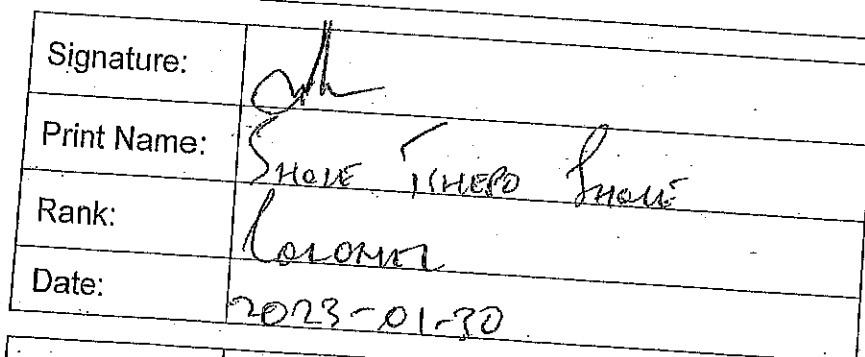 Signature:
Print Name: SHOLE TSHEPO SHOLE
Rank: COLONEL
Date: 2023-01-30